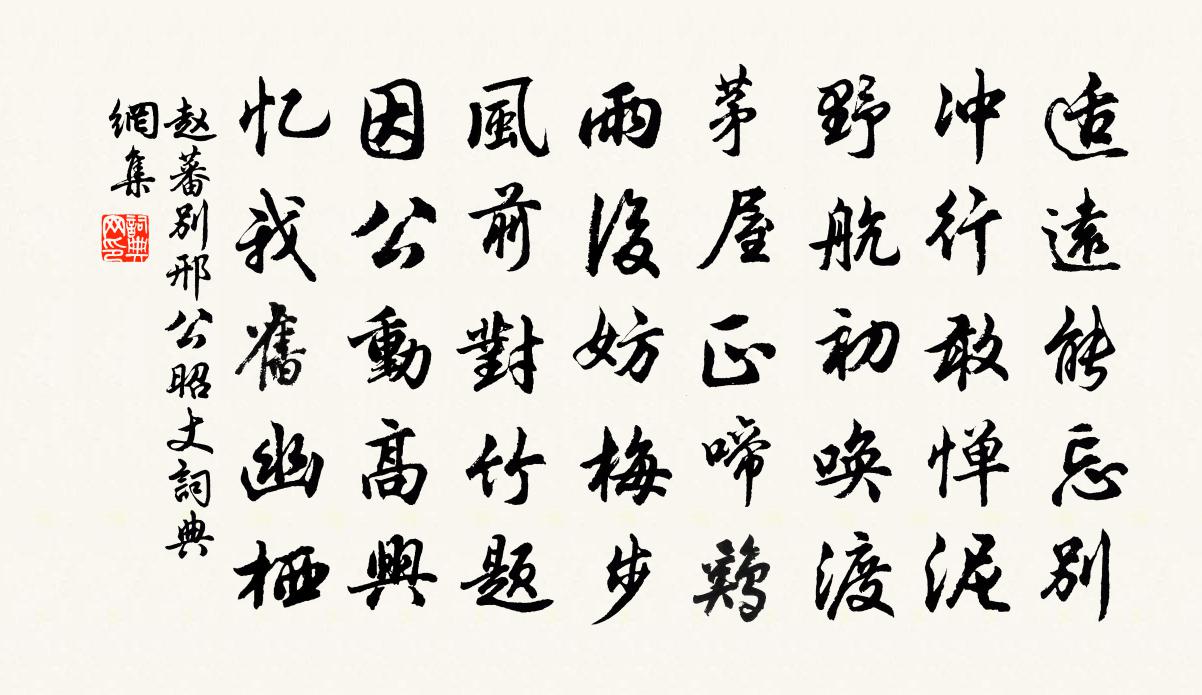 适遠能忘别
冲行敢惮泥
野航初唤渡
茅屋正啼鷄
雨後妨梅步
風前對竹题
因公動高興
忆我舊幽栖
赵蕃别邢公昭丈詞典
網集
詞典网印